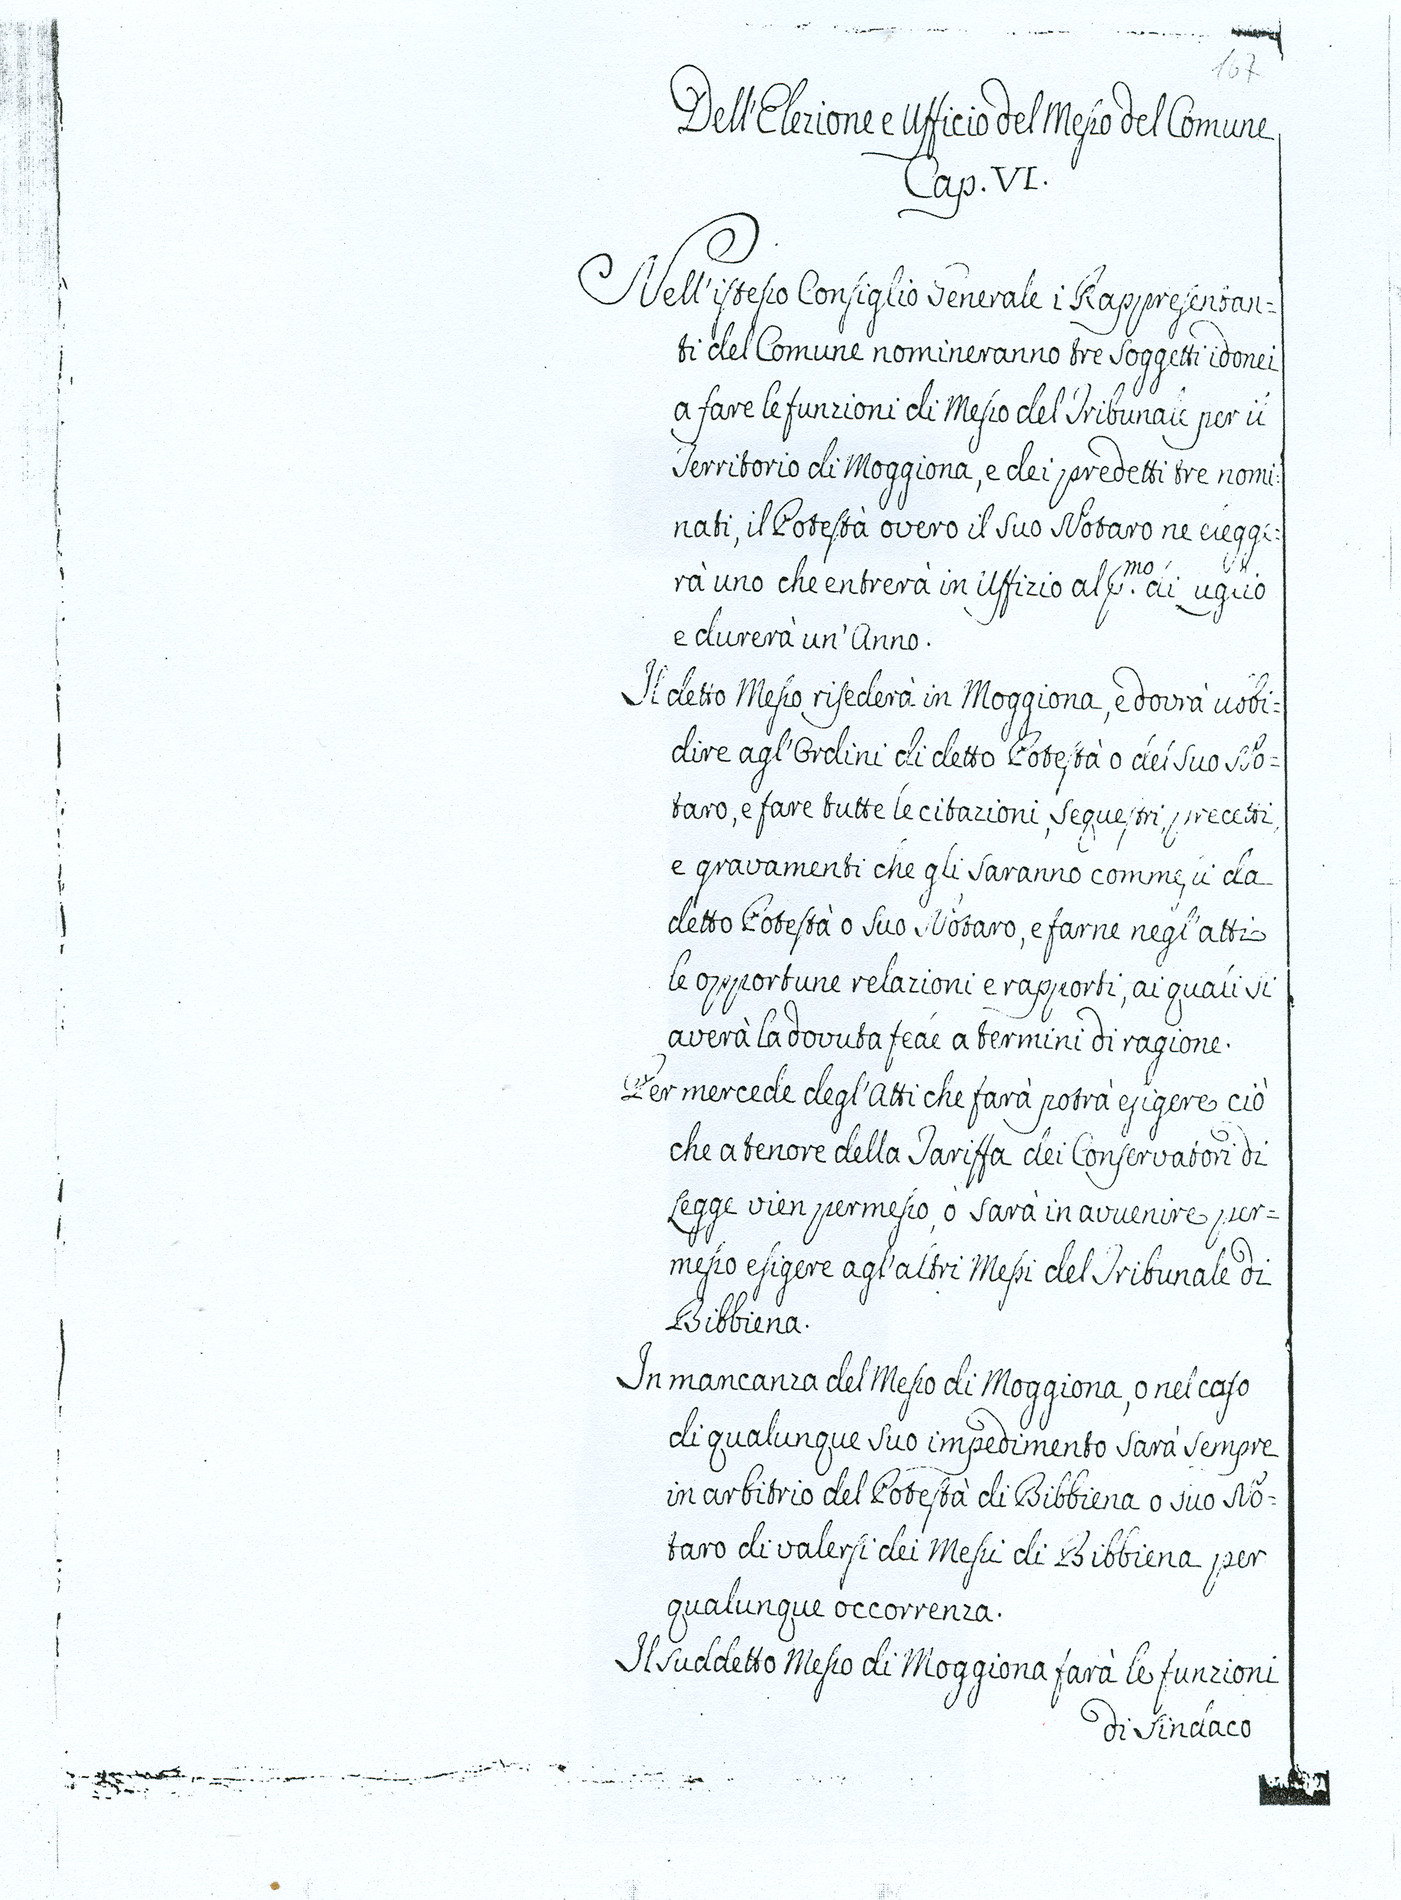 167
Dell'Elezione e Ufficio del Messo del Comune
Cap. VI.
Nell'istesso Consiglio Generale i Rappresentan=
ti del Comune nomineranno tre soggetti idonei
a fare le funzioni di Messo del Tribunale per il
Territorio di Moggiona, e dei predetti tre nomi=
nati, il Potestà overo il suo Notaro ne elegge=
rà uno che entrerà in Uffizio al p.mo di Luglio
e durerà un'Anno.
Il detto Messo risederà in Moggiona, e dovrà uobi=
dire agl'Ordini di detto Potestà o del suo No=
taro, e fare tutte le citazioni, sequestri, precetti,
e gravamenti che gli saranno commessi da
detto Potestà o suo Notaro, e farne negl'atti
le opportune relazioni e rapporti, ai quali si
averà la dovuta fede a termini di ragione.
Per mercede degl'Atti che farà potrà esigere ciò
che a tenore della Tariffa dei Conservatori di
Legge vien permesso, ò sarà in avvenire per=
messo esigere agl'altri Messi del Tribunale di
Bibbiena.
In mancanza del Messo di Moggiona, o nel caso
di qualunque suo impedimento sarà sempre
in arbitrio del Potestà di Bibbiena o suo No=
taro di valersi dei Messi di Bibbiena per
qualunque occorrenza.
Il suddetto Messo di Moggiona farà le funzioni
di Sindaco